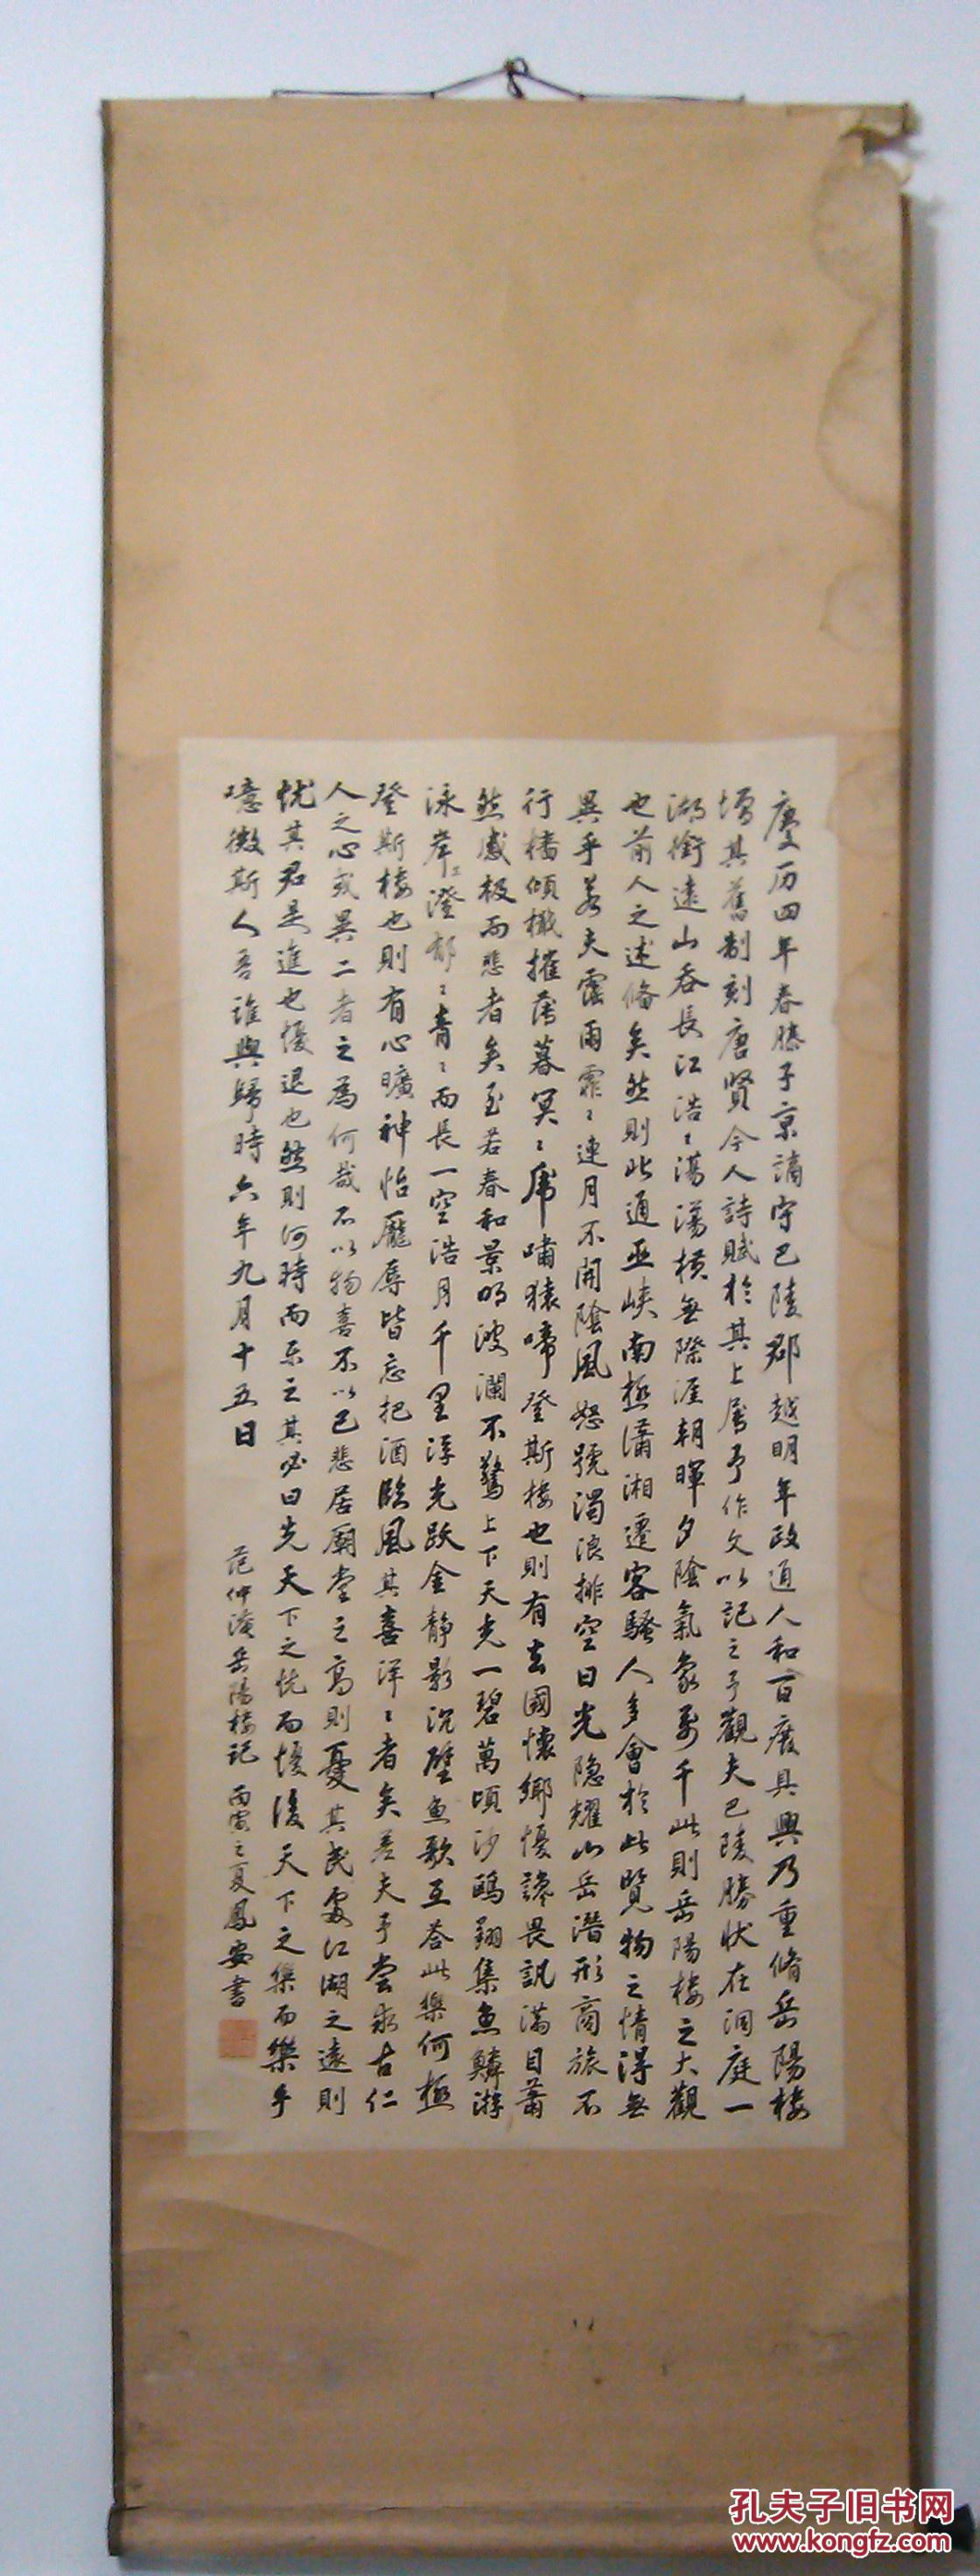 慶历四年春滕子京謫守巴陵郡越明年政通人和百廢具興乃重脩岳陽楼
增其舊制刻唐賢今人詩賦於其上屬予作文以記之予觀夫巴陵勝状在洞庭一
湖銜遠山吞長江浩〻湯湯横無際涯朝暉夕陰氣象萬千此則岳陽楼之大觀
也前人之述俻矣然則北通巫峡南極瀟湘遷客騷人多會於此覽物之情得無
異乎若夫霪雨霏〻連月不開陰風怒號濁浪排空日光隐耀山岳潜形商旅不
行檣傾檝摧薄暮冥〻虎嘯猿啼登斯楼也則有去國懷鄉憂讒畏譏滿目蕭
然感极而悲者矣至若春和景明波瀾不驚上下天光一碧萬頃沙鷗翔集魚鱗游
泳岸芷澄郁〻青〻而長一空浩月千里浮光跃金静影沉璧魚歌互荅此樂何極
登斯楼也則有心曠神怡寵辱皆忘把酒臨風其喜洋〻者矣差夫予尝求古仁
人之心或異二者之為何哉不以物喜不以己悲居廟堂之高則憂其民處江湖之遠則
忧其君是進也憂退也然則何時而乐之其必曰先天下之忧而憂後天下之樂而樂乎
噫微斯人吾誰與歸時六年九月十五日
范仲淹岳陽楼記 丙寅之夏鳳安書
孔夫子旧书网
www.kongfz.com